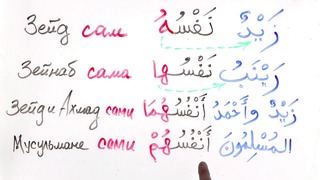 Зейд сам نَفْسُهُ زَيْدٌ
Зейнаб сама نَفْسُها زَيْنَبُ
Зейд и Ахмад сами أَنْفُسُهُمَا زَيْدٌ وأَحْمَدُ
Мусульмане сами أَنْفُسُهُمْ المُسْلِمُونَ